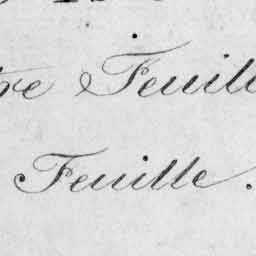 tre Feuill
Feuille.